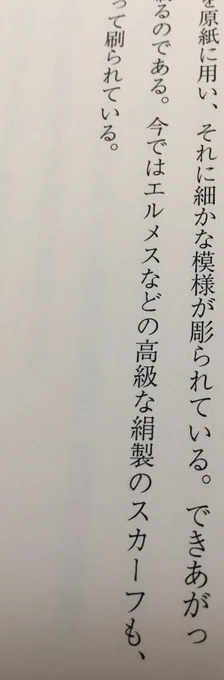 を原紙に用い、それに細かな模様が彫られている。できあがっ
るのである。今ではエルメスなどの高級な絹製のスカーフも、
って刷られている。